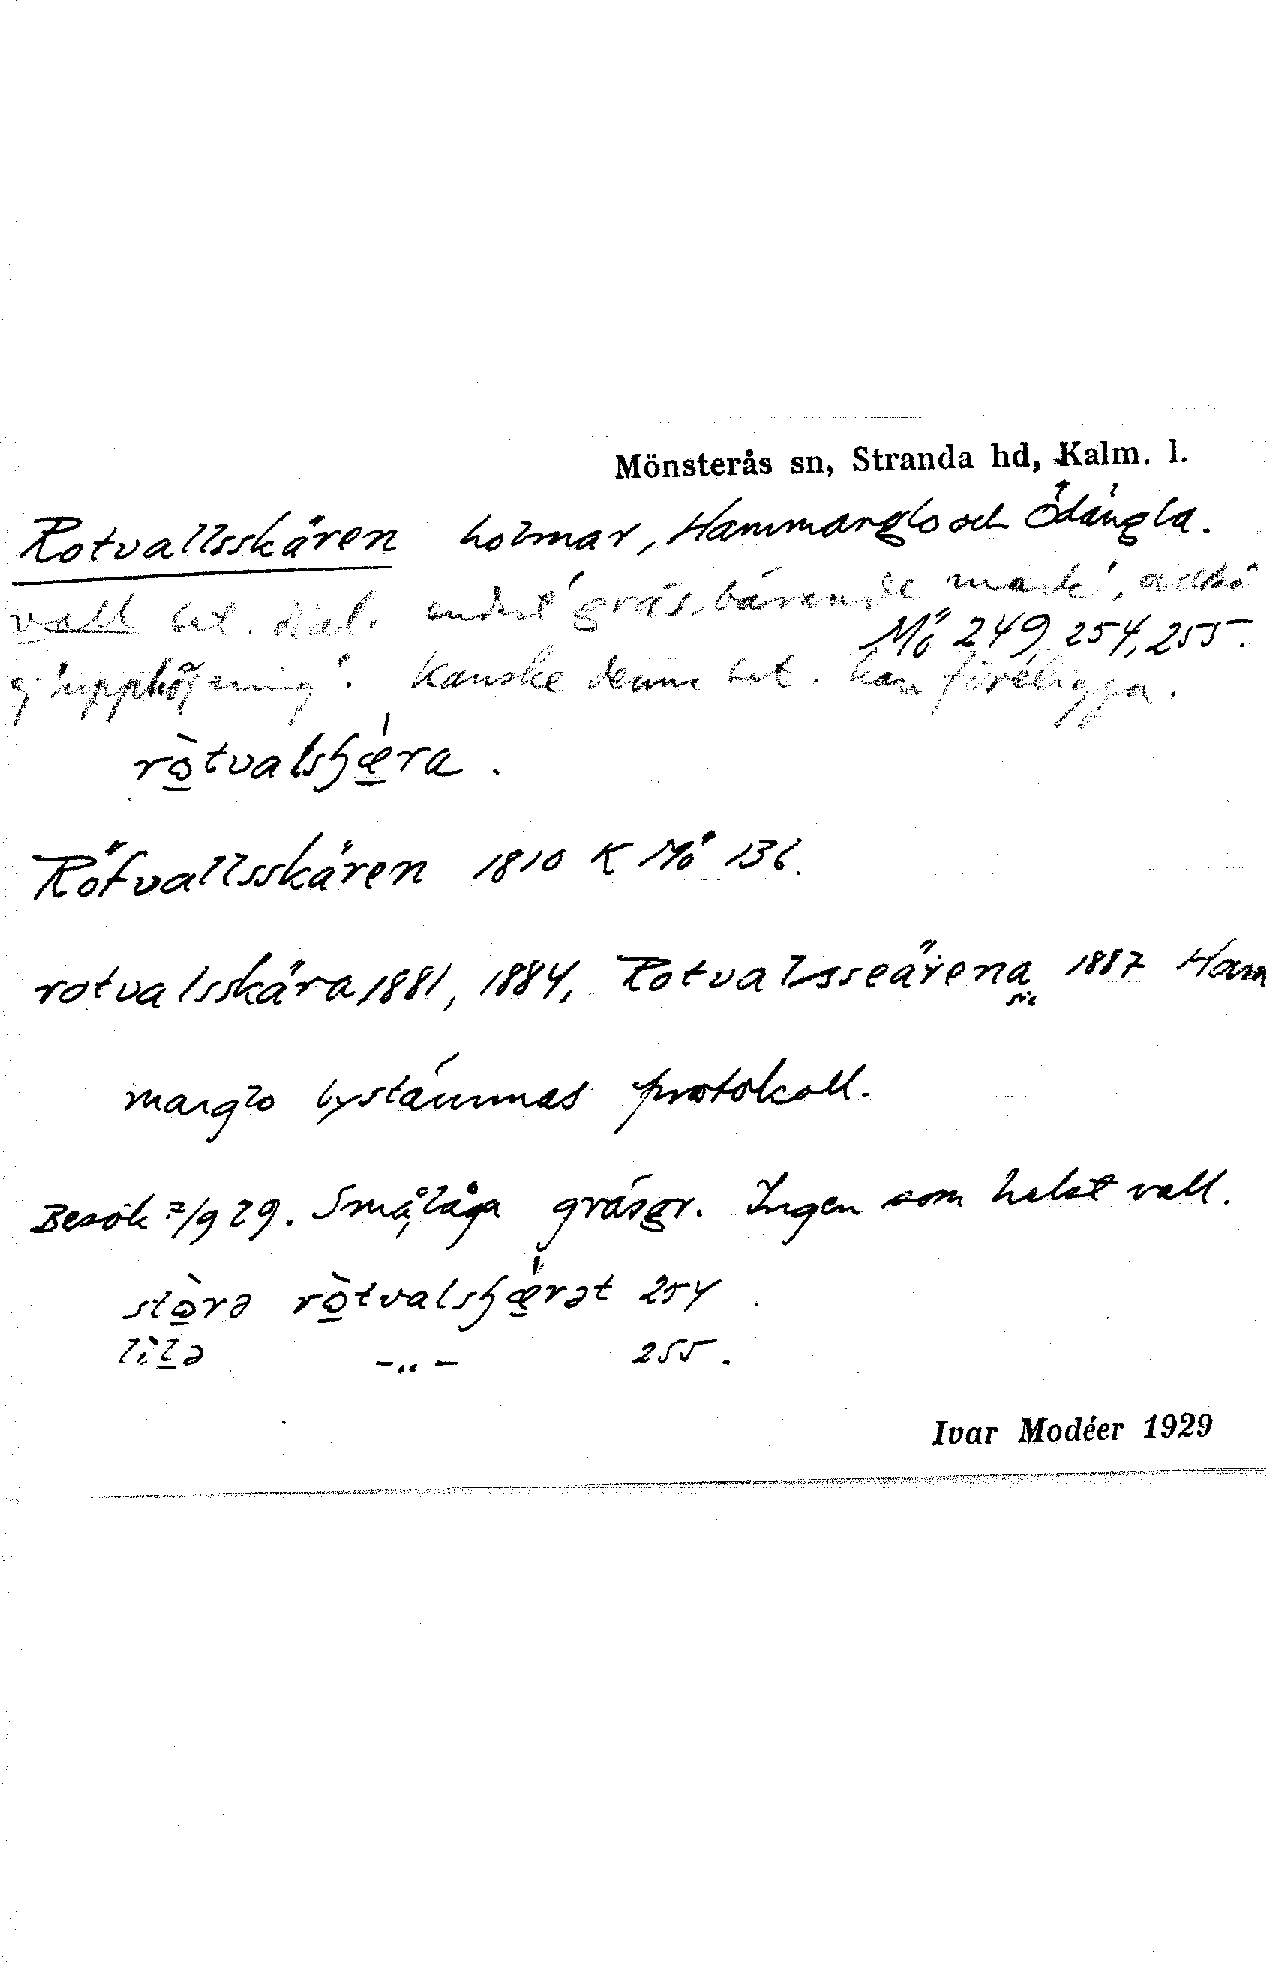 Mönsterås sn, Stranda hd, Kalm. l.
Rotvallsskären holmar, Hammarglo och Ödängla.
vall bet. dial. endast 'gräsbärande mark', alltså
Mö 249, 254, 255.
ej 'upphöjning'. Kanske denna bet. kan föreligga.
ròtvalsɧǽra.
Röfvallsskären 1810 K Mö 136.
rotvalsskära 1881, 1884, Rotvalsseärena 1887 Ham
sic
marglo bystämmas protokoll.
Besök 2/9 29. Små, låga gräsgr. Ingen som helst vall.
stòrə ròtvalsɧǽrət 254
lìlə -„- 255.
Ivar Modéer 1929